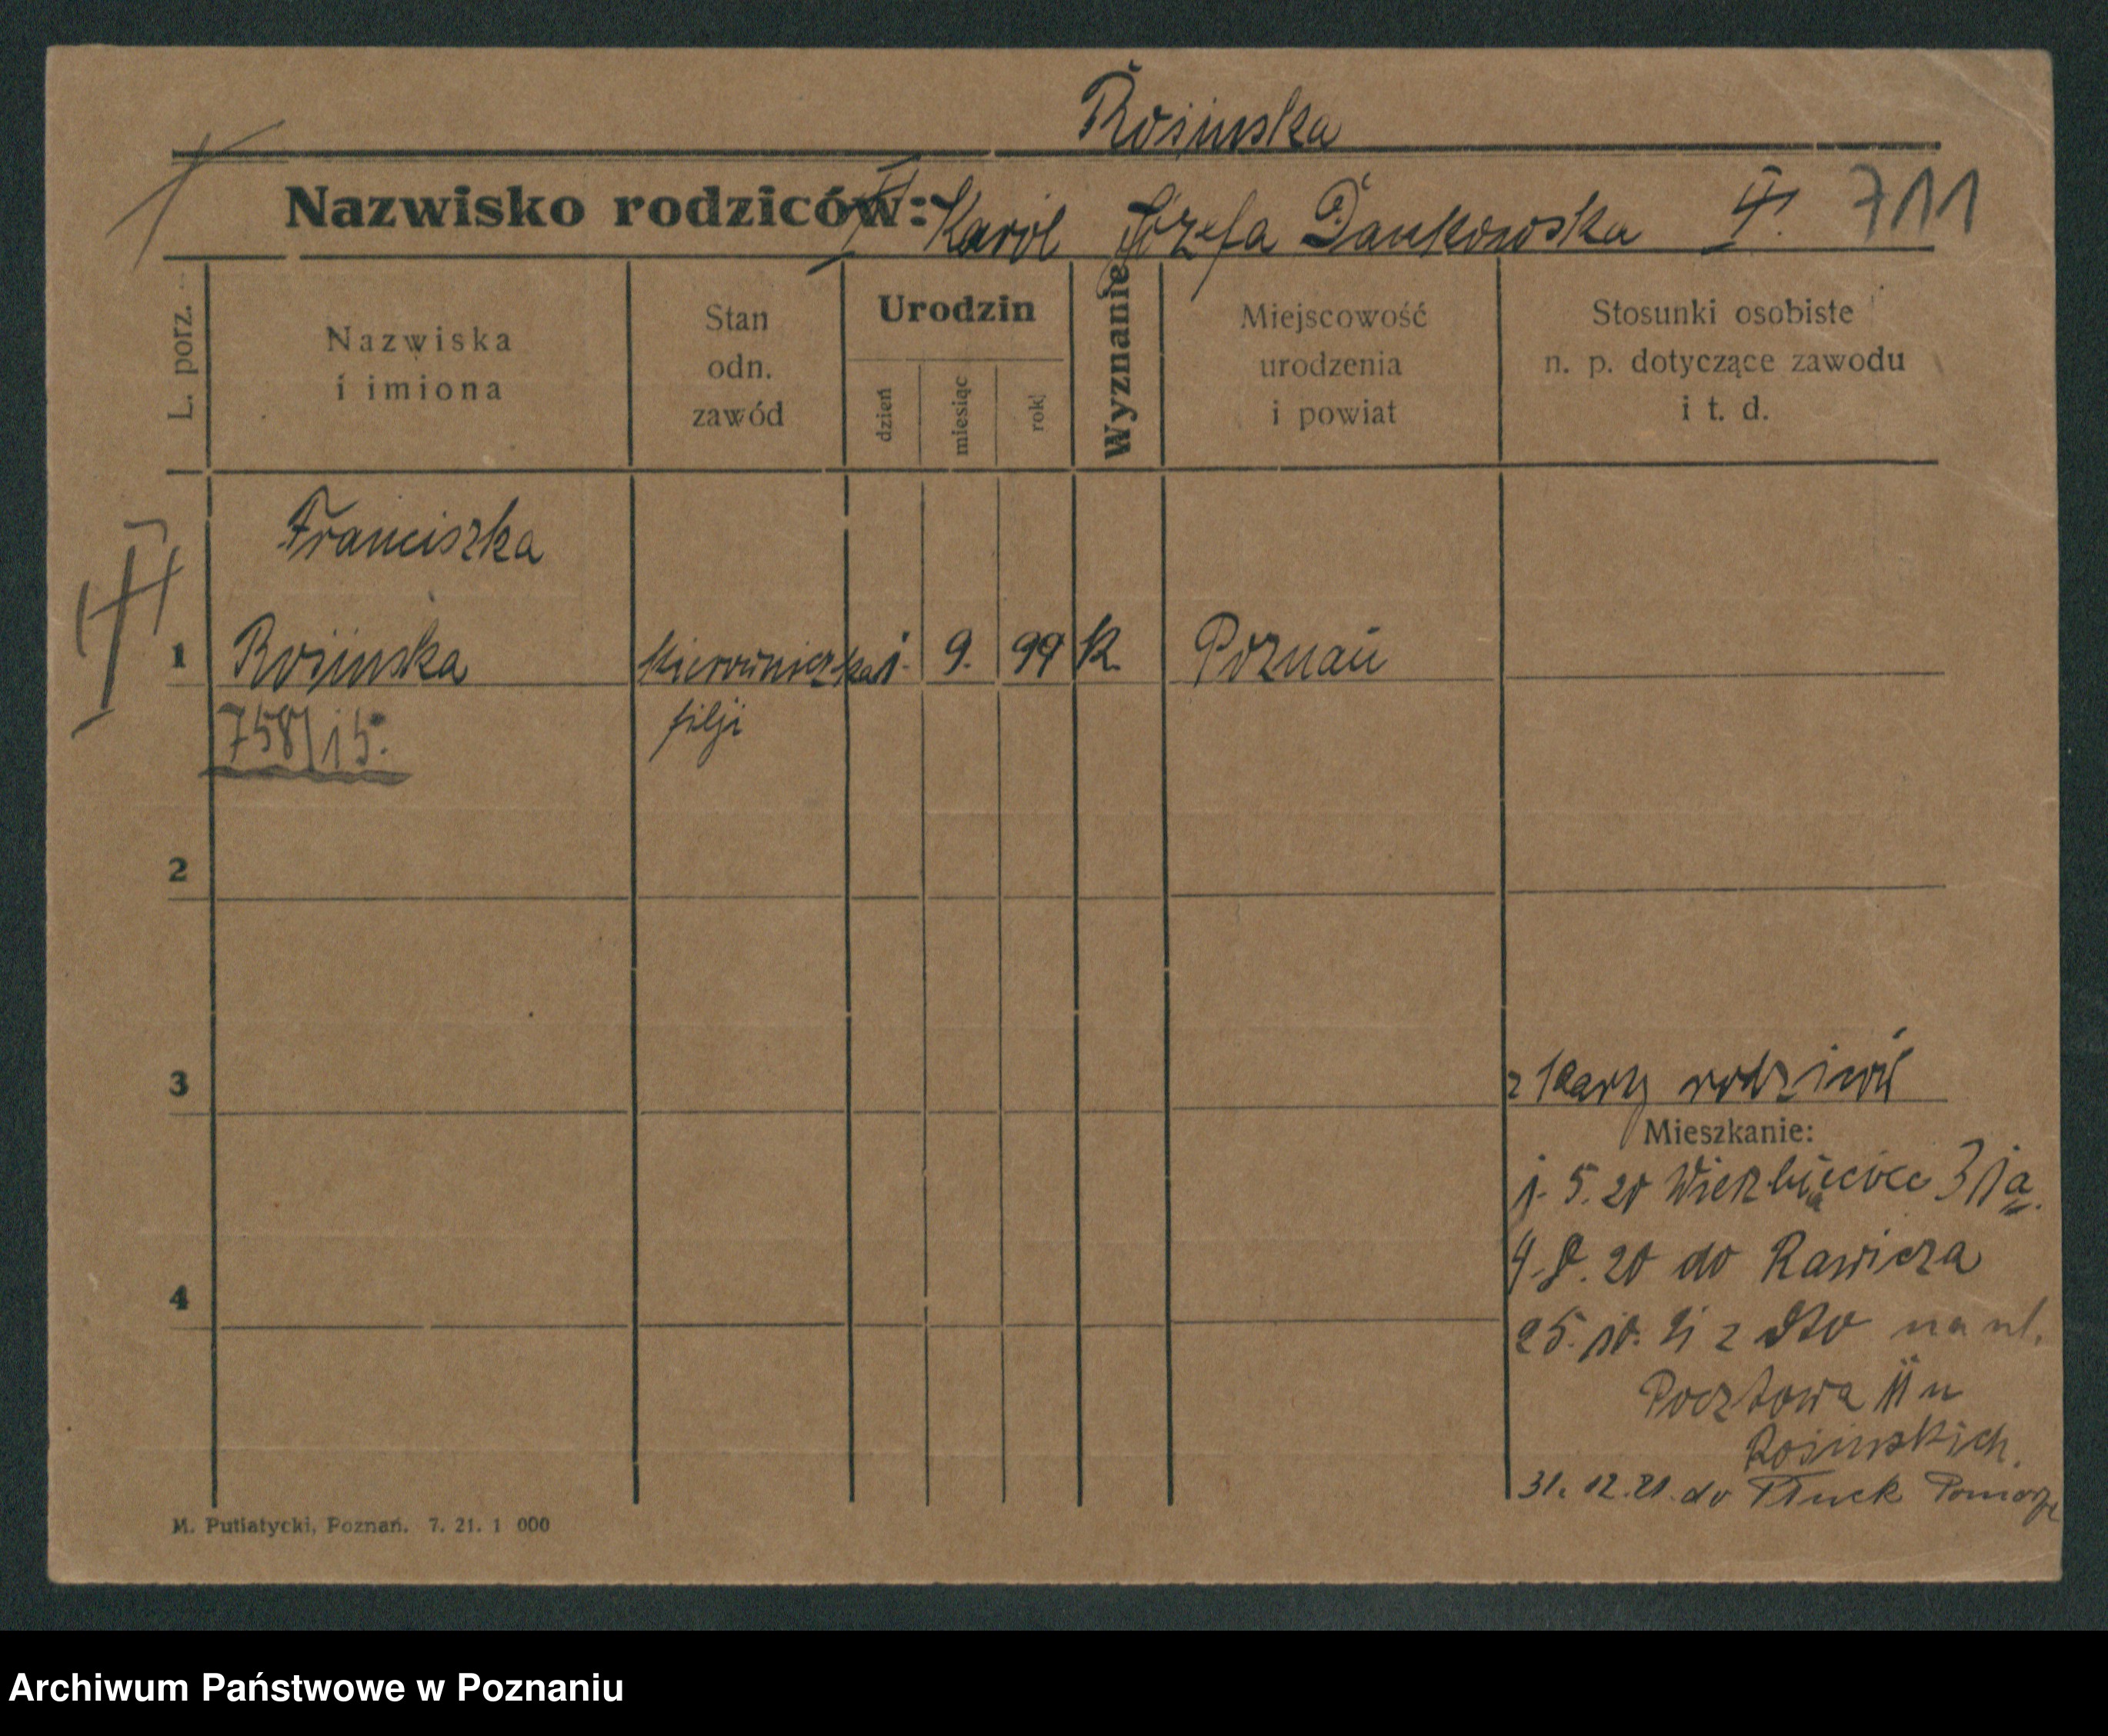 Rosinska
Nazwisko rodziców: Karol Józefa Dankowska 711
L. porz.
Nazwiska
i imiona
Stan
odn.
zawód
Urodzin
dzień
miesiąc
rok
Wyznanie
Miejscowość
urodzenia
i powiat
Stosunki osobiste
n. p. dotyczące zawodu
i t. d.
Franciszka
1 Rosinska kierowniczka 1. 9. 99 k. Poznań
758/15. filji
2
3
z karty rodziców
Mieszkanie:
1. 5. 20 31a.
4. 8. 20 do Rawicza
4
25. 10. 21 z na ul.
Pocztowa 11 u
Rosinskich.
31. 12. 21. do Pomorze
M. Putiatycki, Poznań. 7. 21. 1 000
Archiwum Państwowe w Poznaniu